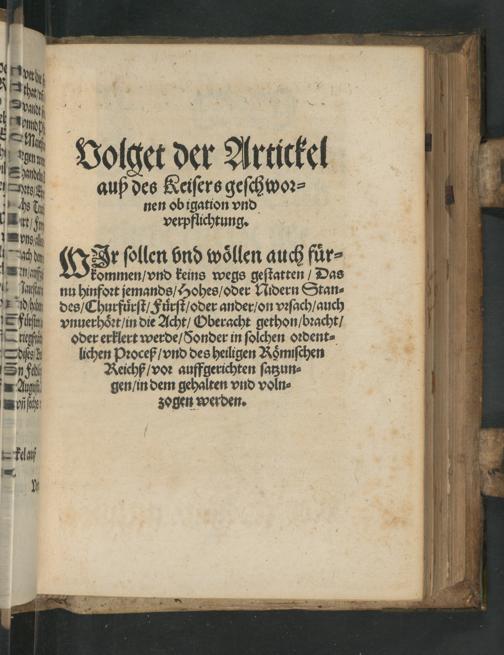 Volget der Artickel
auß des Keisers geschwor-
nen obigation vnd
verpflichtung.
WIr sollen vnd wöllen auch für-
kommen/vnd keins wegs gestatten/Das
nu hinfort jemands/Hohes/oder Nidern Stan-
des/Churfürst/Fürst/oder ander/on vrsach/auch
vnuerhört/in die Acht/Oberacht gethon/bracht/
oder erklert werde/Sonder in solchen ordent-
lichen Proceß/vnd des heiligen Römischen
Reichß/vor auffgerichten satzun-
gen/in dem gehalten vnd voln-
zogen werden.